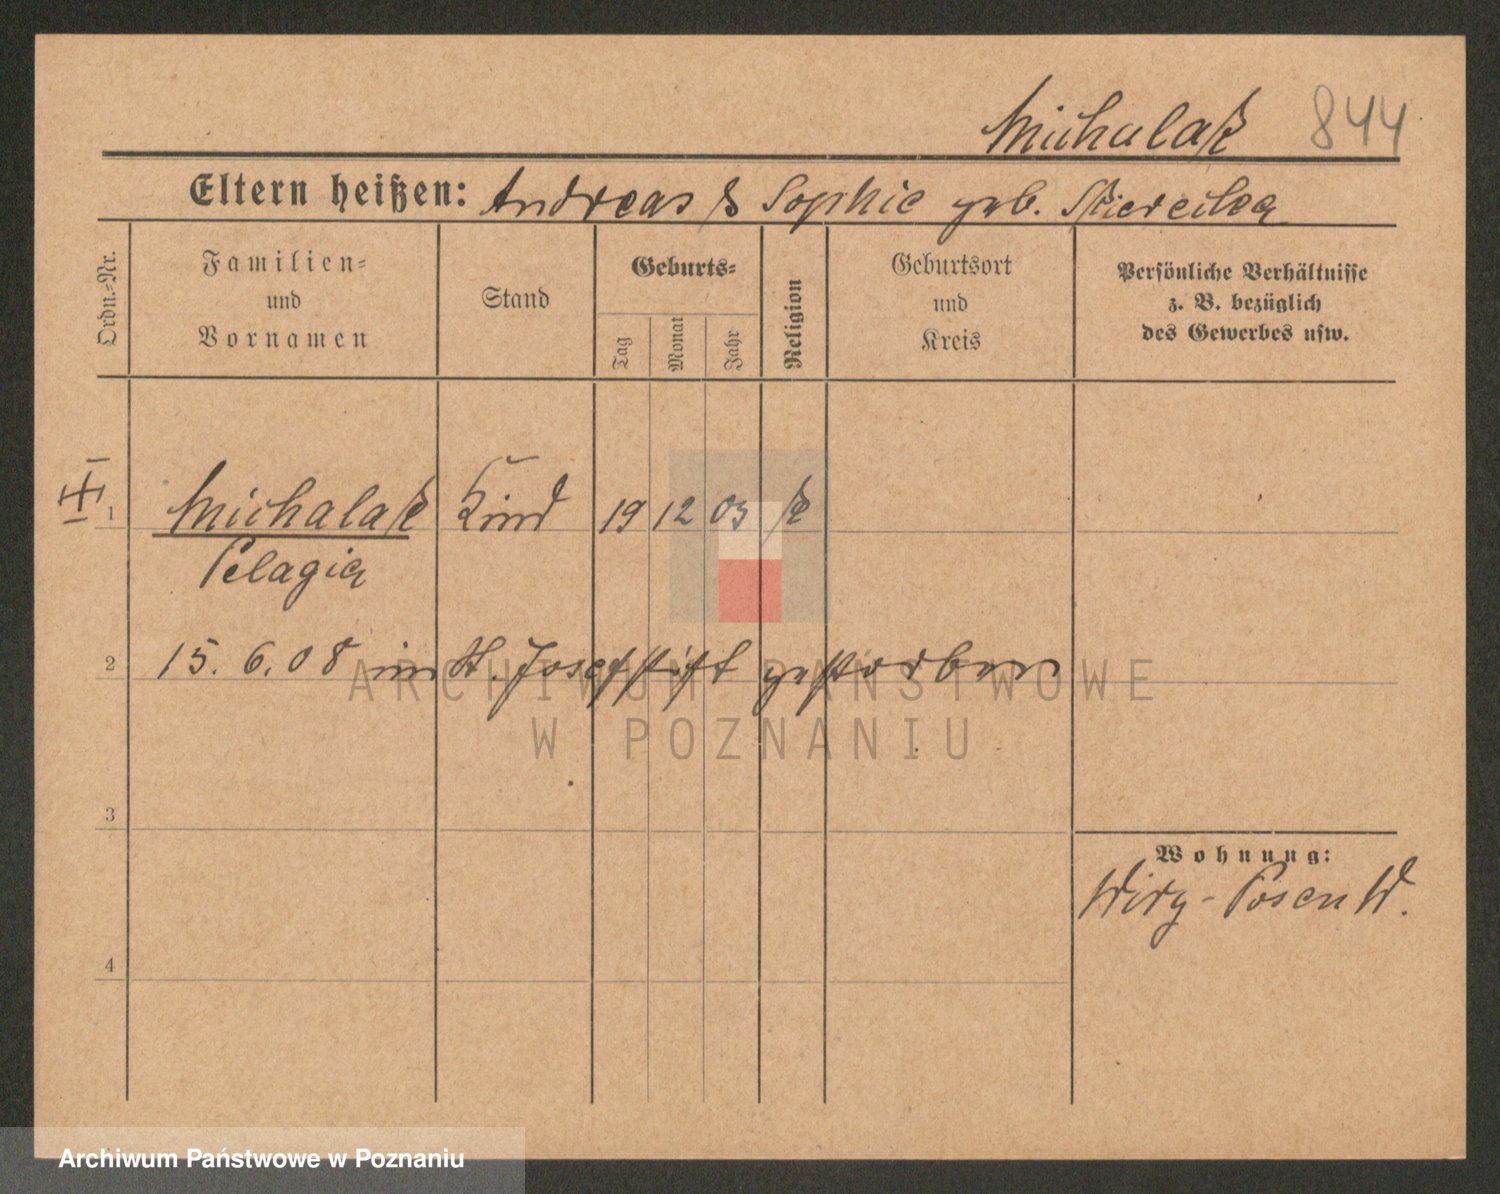 Michalak 844
Eltern heißen: Andreas & Sophie geb.
Ordn.-Nr.
Familien-
und
Vornamen
Stand
Geburts-
Tag
Monat
Jahr
Religion
Geburtsort
und
Kreis
Persönliche Verhältnisse
z. B. bezüglich
des Gewerbes usw.
1 Michalak Kind 19 12 03 k
Pelagia
2 15. 6. 08 im St. Josefstift gestorben
3
4
Wohnung:
Wiry - Posen W.
ARCHIWUM PAŃSTWOWE
W POZNANIU
Archiwum Państwowe w Poznaniu